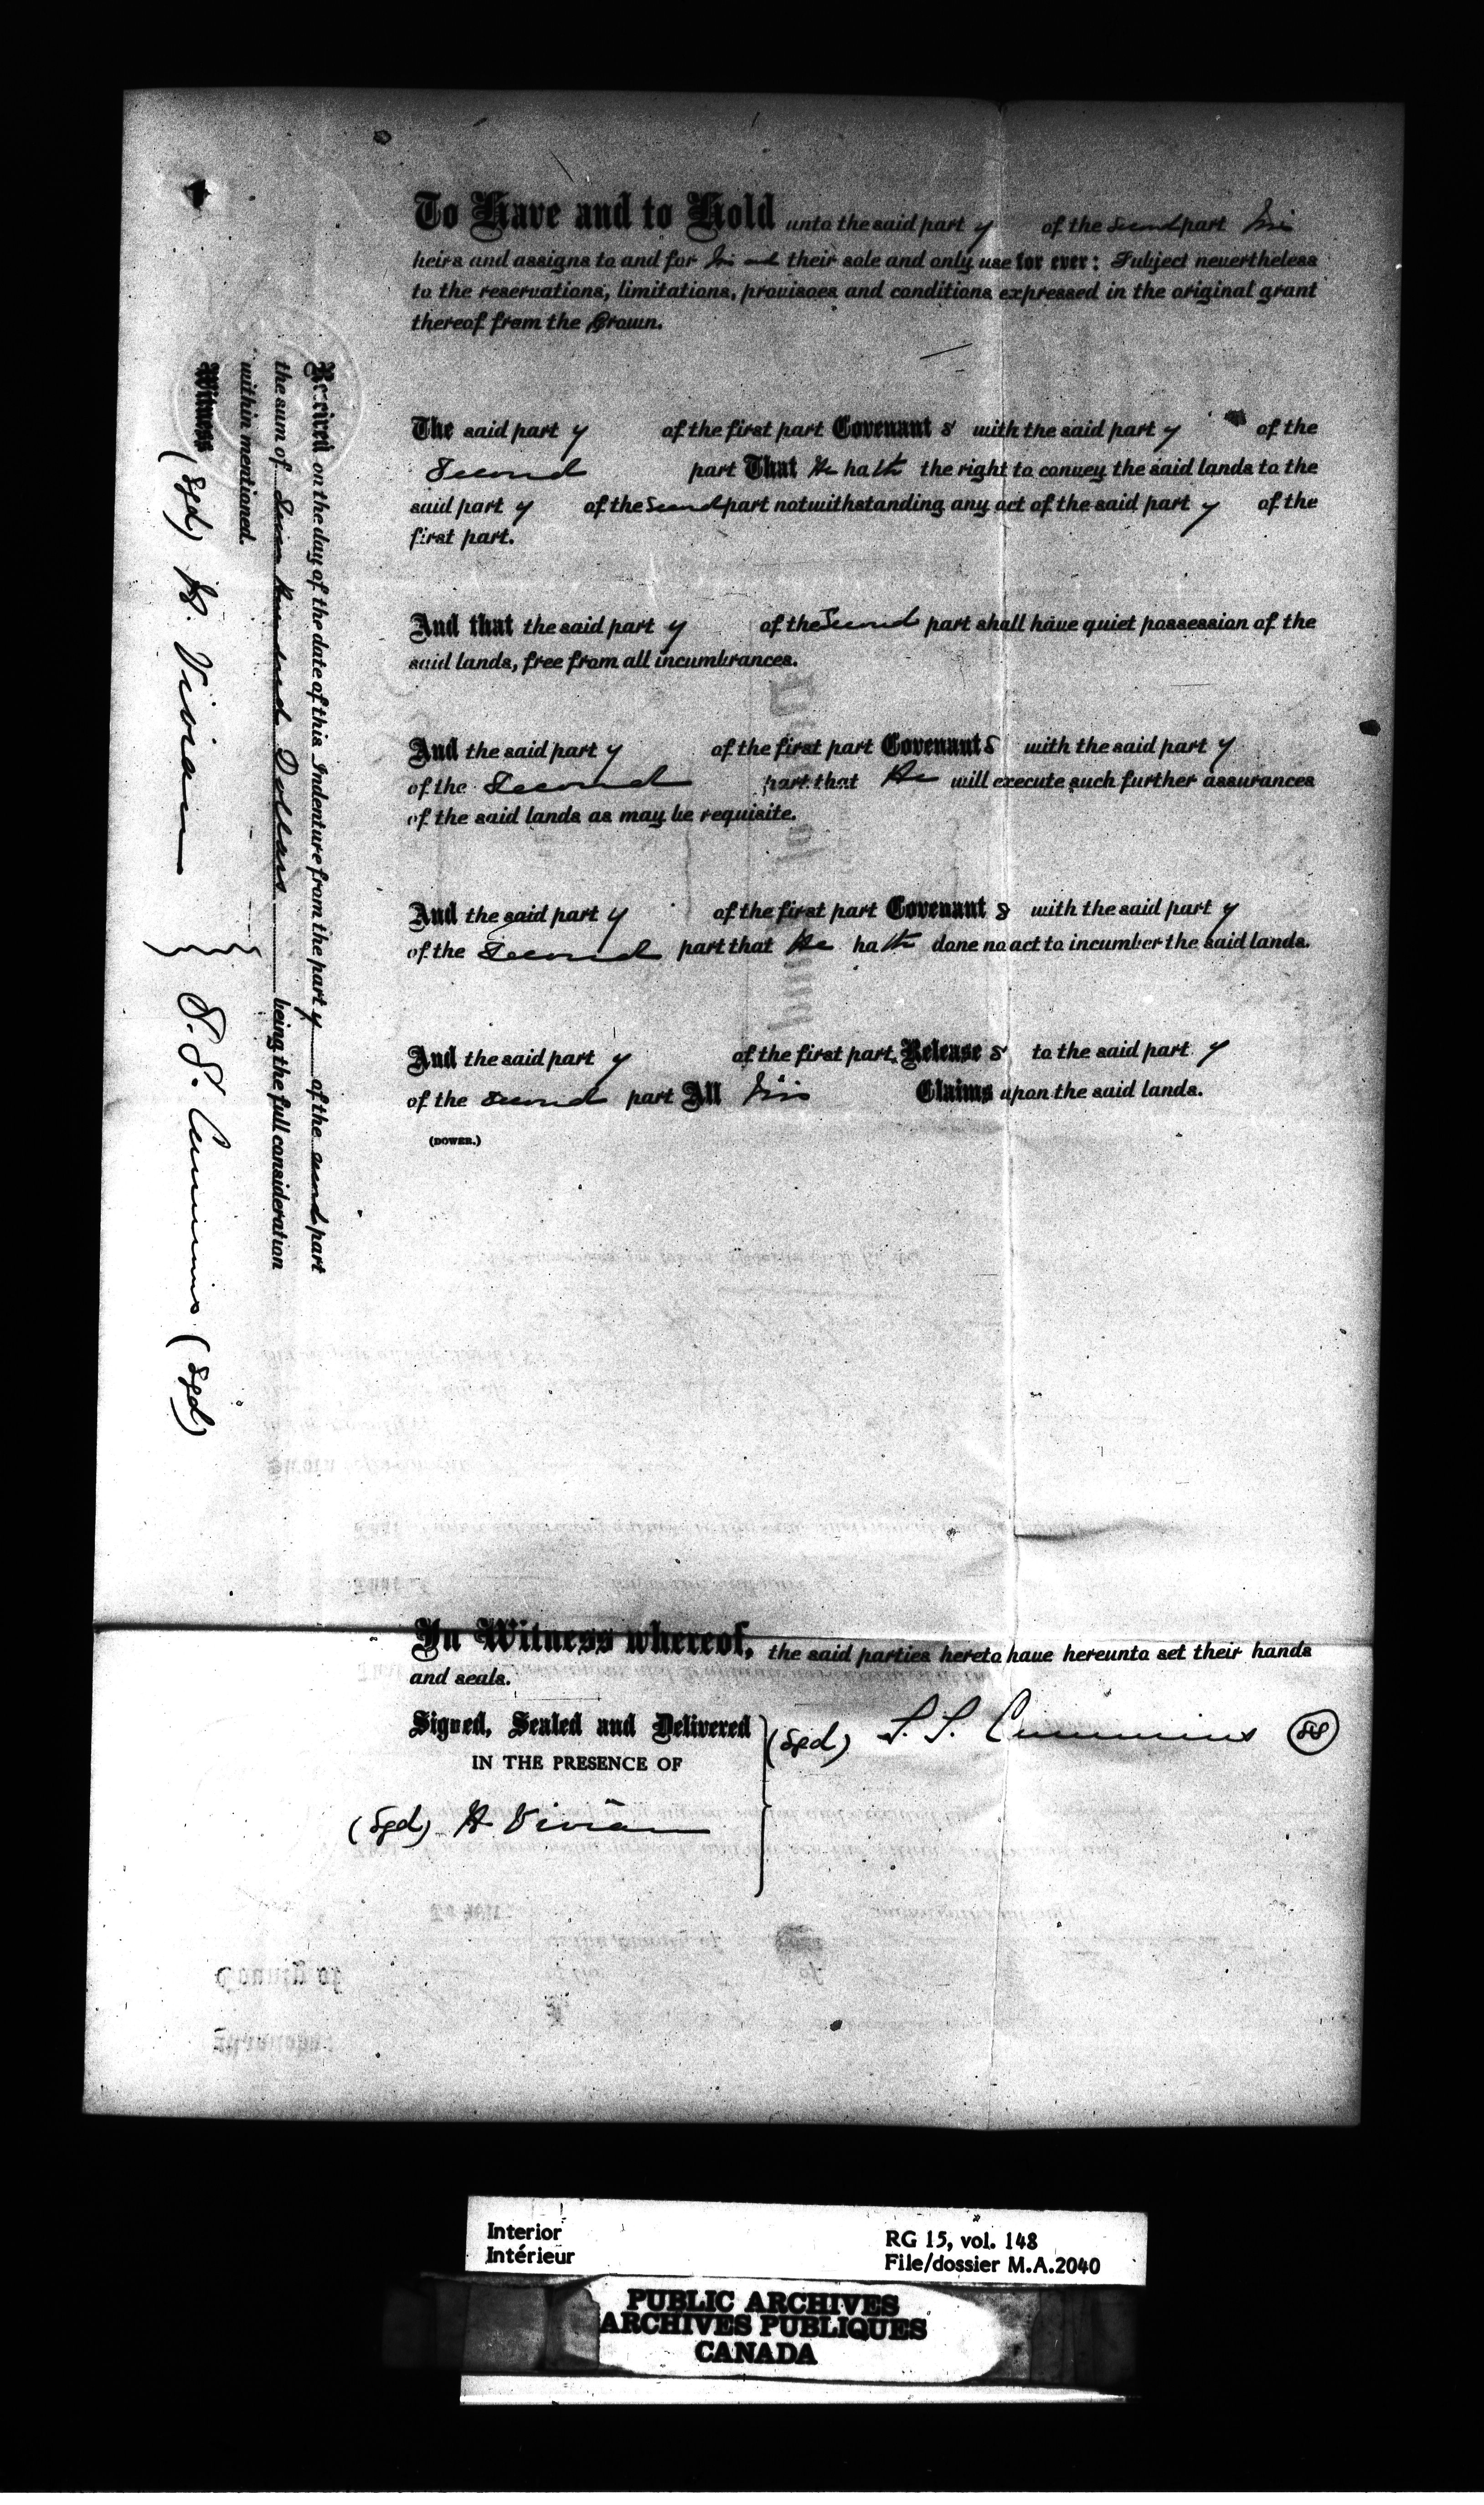 To Have and to Hold unto the said part y of the second part his
heirs and assigns to and for his and their sole and only use for ever: Subject nevertheless
to the reservations, limitations, provisoes and conditions expressed in the original grant
thereof from the Crown.
The said part y of the first part Covenant s with the said part y of the
Second part That He ha th the right to convey the said lands to the
said part y of the Second part notwithstanding any act of the said part y of the
first part.
And that the said part y of the Second part shall have quiet possession of the
said lands, free from all incumbrances.
And the said part y of the first part Covenant s with the said part y
of the Second part that He will execute such further assurances
of the said lands as may be requisite.
And the said part y of the first part Covenant s with the said part y
of the Second part that He ha th done no act to incumber the said lands.
And the said part y of the first part, Release s to the said part y
of the second part All his Claims upon the said lands.
(DOWER.)
In Witness whereof, the said parties hereto have hereunto set their hands
and seals.
Signed, Sealed and Delivered
IN THE PRESENCE OF
(Sgd) S. S. Cummins
(Sgd) H. Vivian
Received on the day of the date of this Indenture from the part y of the second part
the sum of hundred Dollars being the full consideration
within mentioned.
Witness
(Sgd) H. Vivian } S. S. Cummins (Sgd)
Interior
Intérieur
RG 15, vol. 148
File/dossier M.A.2040
PUBLIC ARCHIVES
ARCHIVES PUBLIQUES
CANADA